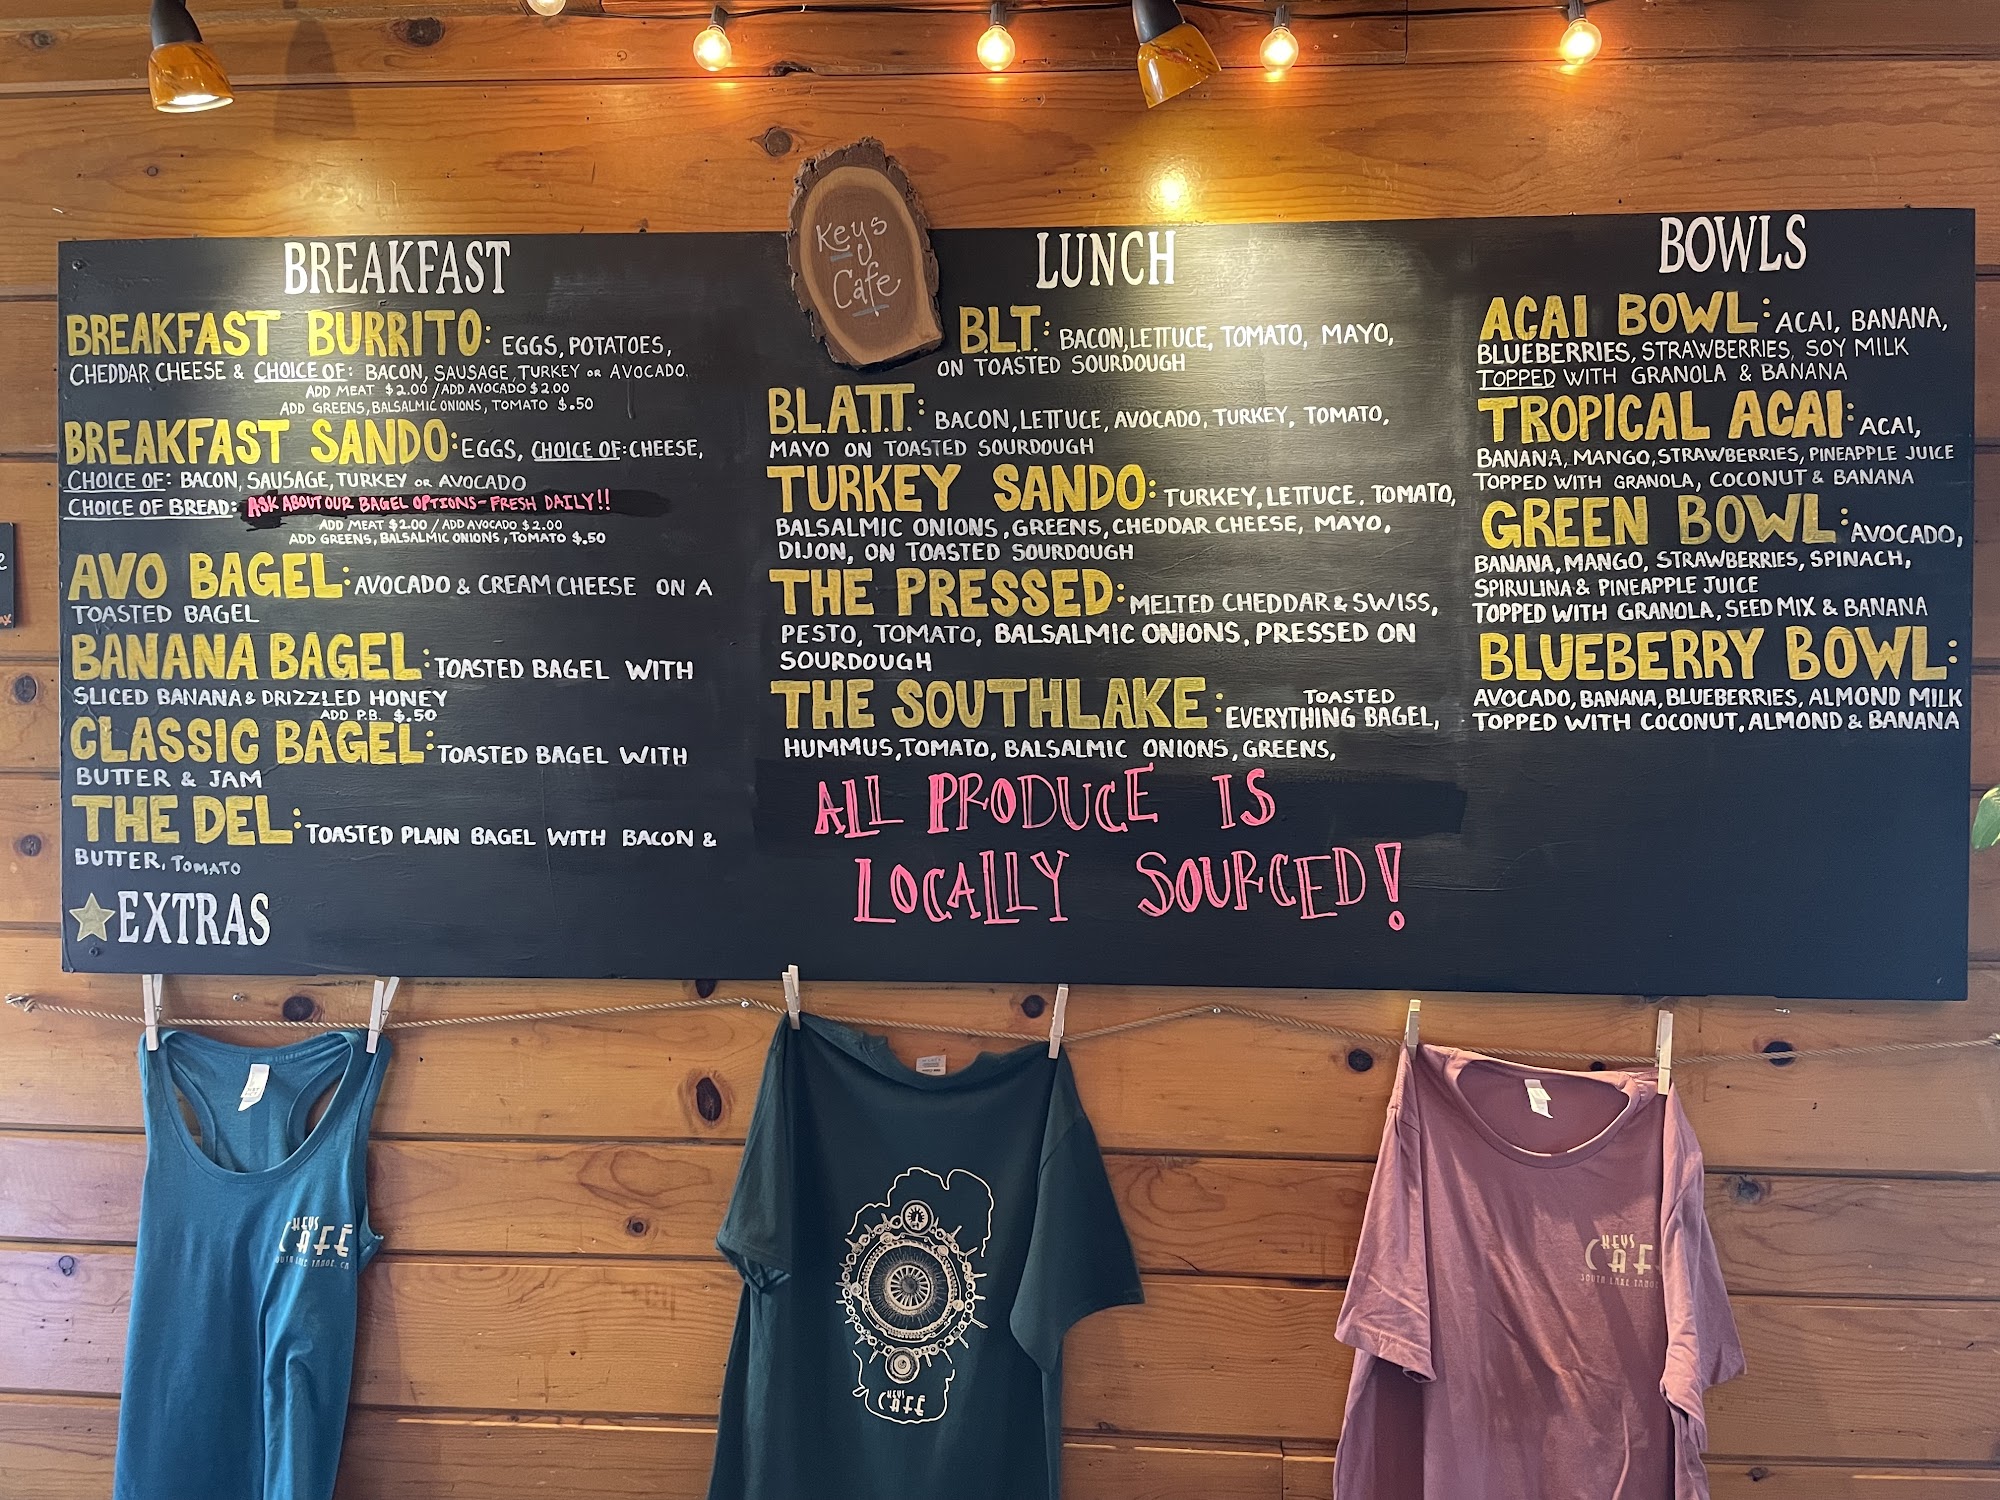 Keys
Cafe
BREAKFAST
BREAKFAST BURRITO: EGGS, POTATOES,
CHEDDAR CHEESE & CHOICE OF: BACON, SAUSAGE, TURKEY OR AVOCADO.
ADD MEAT $2.00 / ADD AVOCADO $2.00
ADD GREENS, BALSALMIC ONIONS, TOMATO $.50
BREAKFAST SANDO: EGGS, CHOICE OF: CHEESE,
CHOICE OF: BACON, SAUSAGE, TURKEY OR AVOCADO
CHOICE OF BREAD: ASK ABOUT OUR BAGEL OPTIONS - FRESH DAILY!!
ADD MEAT $2.00 / ADD AVOCADO $2.00
ADD GREENS, BALSALMIC ONIONS, TOMATO $.50
AVO BAGEL: AVOCADO & CREAM CHEESE ON A
TOASTED BAGEL
BANANA BAGEL: TOASTED BAGEL WITH
SLICED BANANA & DRIZZLED HONEY
ADD P.B. $.50
CLASSIC BAGEL: TOASTED BAGEL WITH
BUTTER & JAM
THE DEL: TOASTED PLAIN BAGEL WITH BACON &
BUTTER, TOMATO
EXTRAS
LUNCH
B.L.T.: BACON, LETTUCE, TOMATO, MAYO,
ON TOASTED SOURDOUGH
B.L.A.T.T.: BACON, LETTUCE, AVOCADO, TURKEY, TOMATO,
MAYO ON TOASTED SOURDOUGH
TURKEY SANDO: TURKEY, LETTUCE. TOMATO,
BALSALMIC ONIONS, GREENS, CHEDDAR CHEESE, MAYO,
DIJON, ON TOASTED SOURDOUGH
THE PRESSED: MELTED CHEDDAR & SWISS,
PESTO, TOMATO, BALSALMIC ONIONS, PRESSED ON
SOURDOUGH
THE SOUTHLAKE: TOASTED
EVERYTHING BAGEL,
HUMMUS, TOMATO, BALSALMIC ONIONS, GREENS,
ALL PRODUCE IS
LOCALLY SOURCED!
BOWLS
ACAI BOWL: ACAI, BANANA,
BLUEBERRIES, STRAWBERRIES, SOY MILK
TOPPED WITH GRANOLA & BANANA
TROPICAL ACAI: ACAI,
BANANA, MANGO, STRAWBERRIES, PINEAPPLE JUICE
TOPPED WITH GRANOLA, COCONUT & BANANA
GREEN BOWL: AVOCADO,
BANANA, MANGO, STRAWBERRIES, SPINACH,
SPIRULINA & PINEAPPLE JUICE
TOPPED WITH GRANOLA, SEED MIX & BANANA
BLUEBERRY BOWL:
AVOCADO, BANANA, BLUEBERRIES, ALMOND MILK
TOPPED WITH COCONUT, ALMOND & BANANA
KEYS
CAFÉ
SOUTH LAKE TAHOE, CA
KEYS
CAFÉ
KEYS
CAF
SOUTH LAKE TAHO